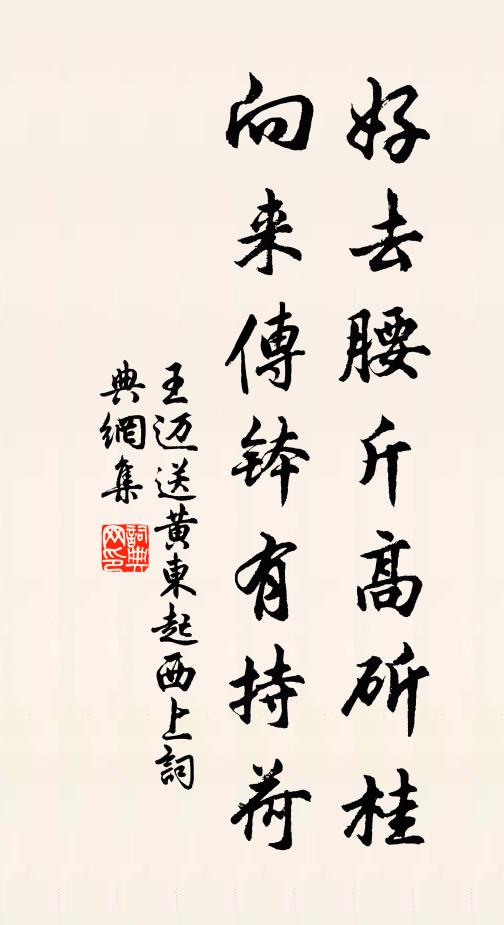 好去腰斤高斫桂
向来傳鉢有持荷
王迈送黄東起西上詞
典網集
詞典
网印